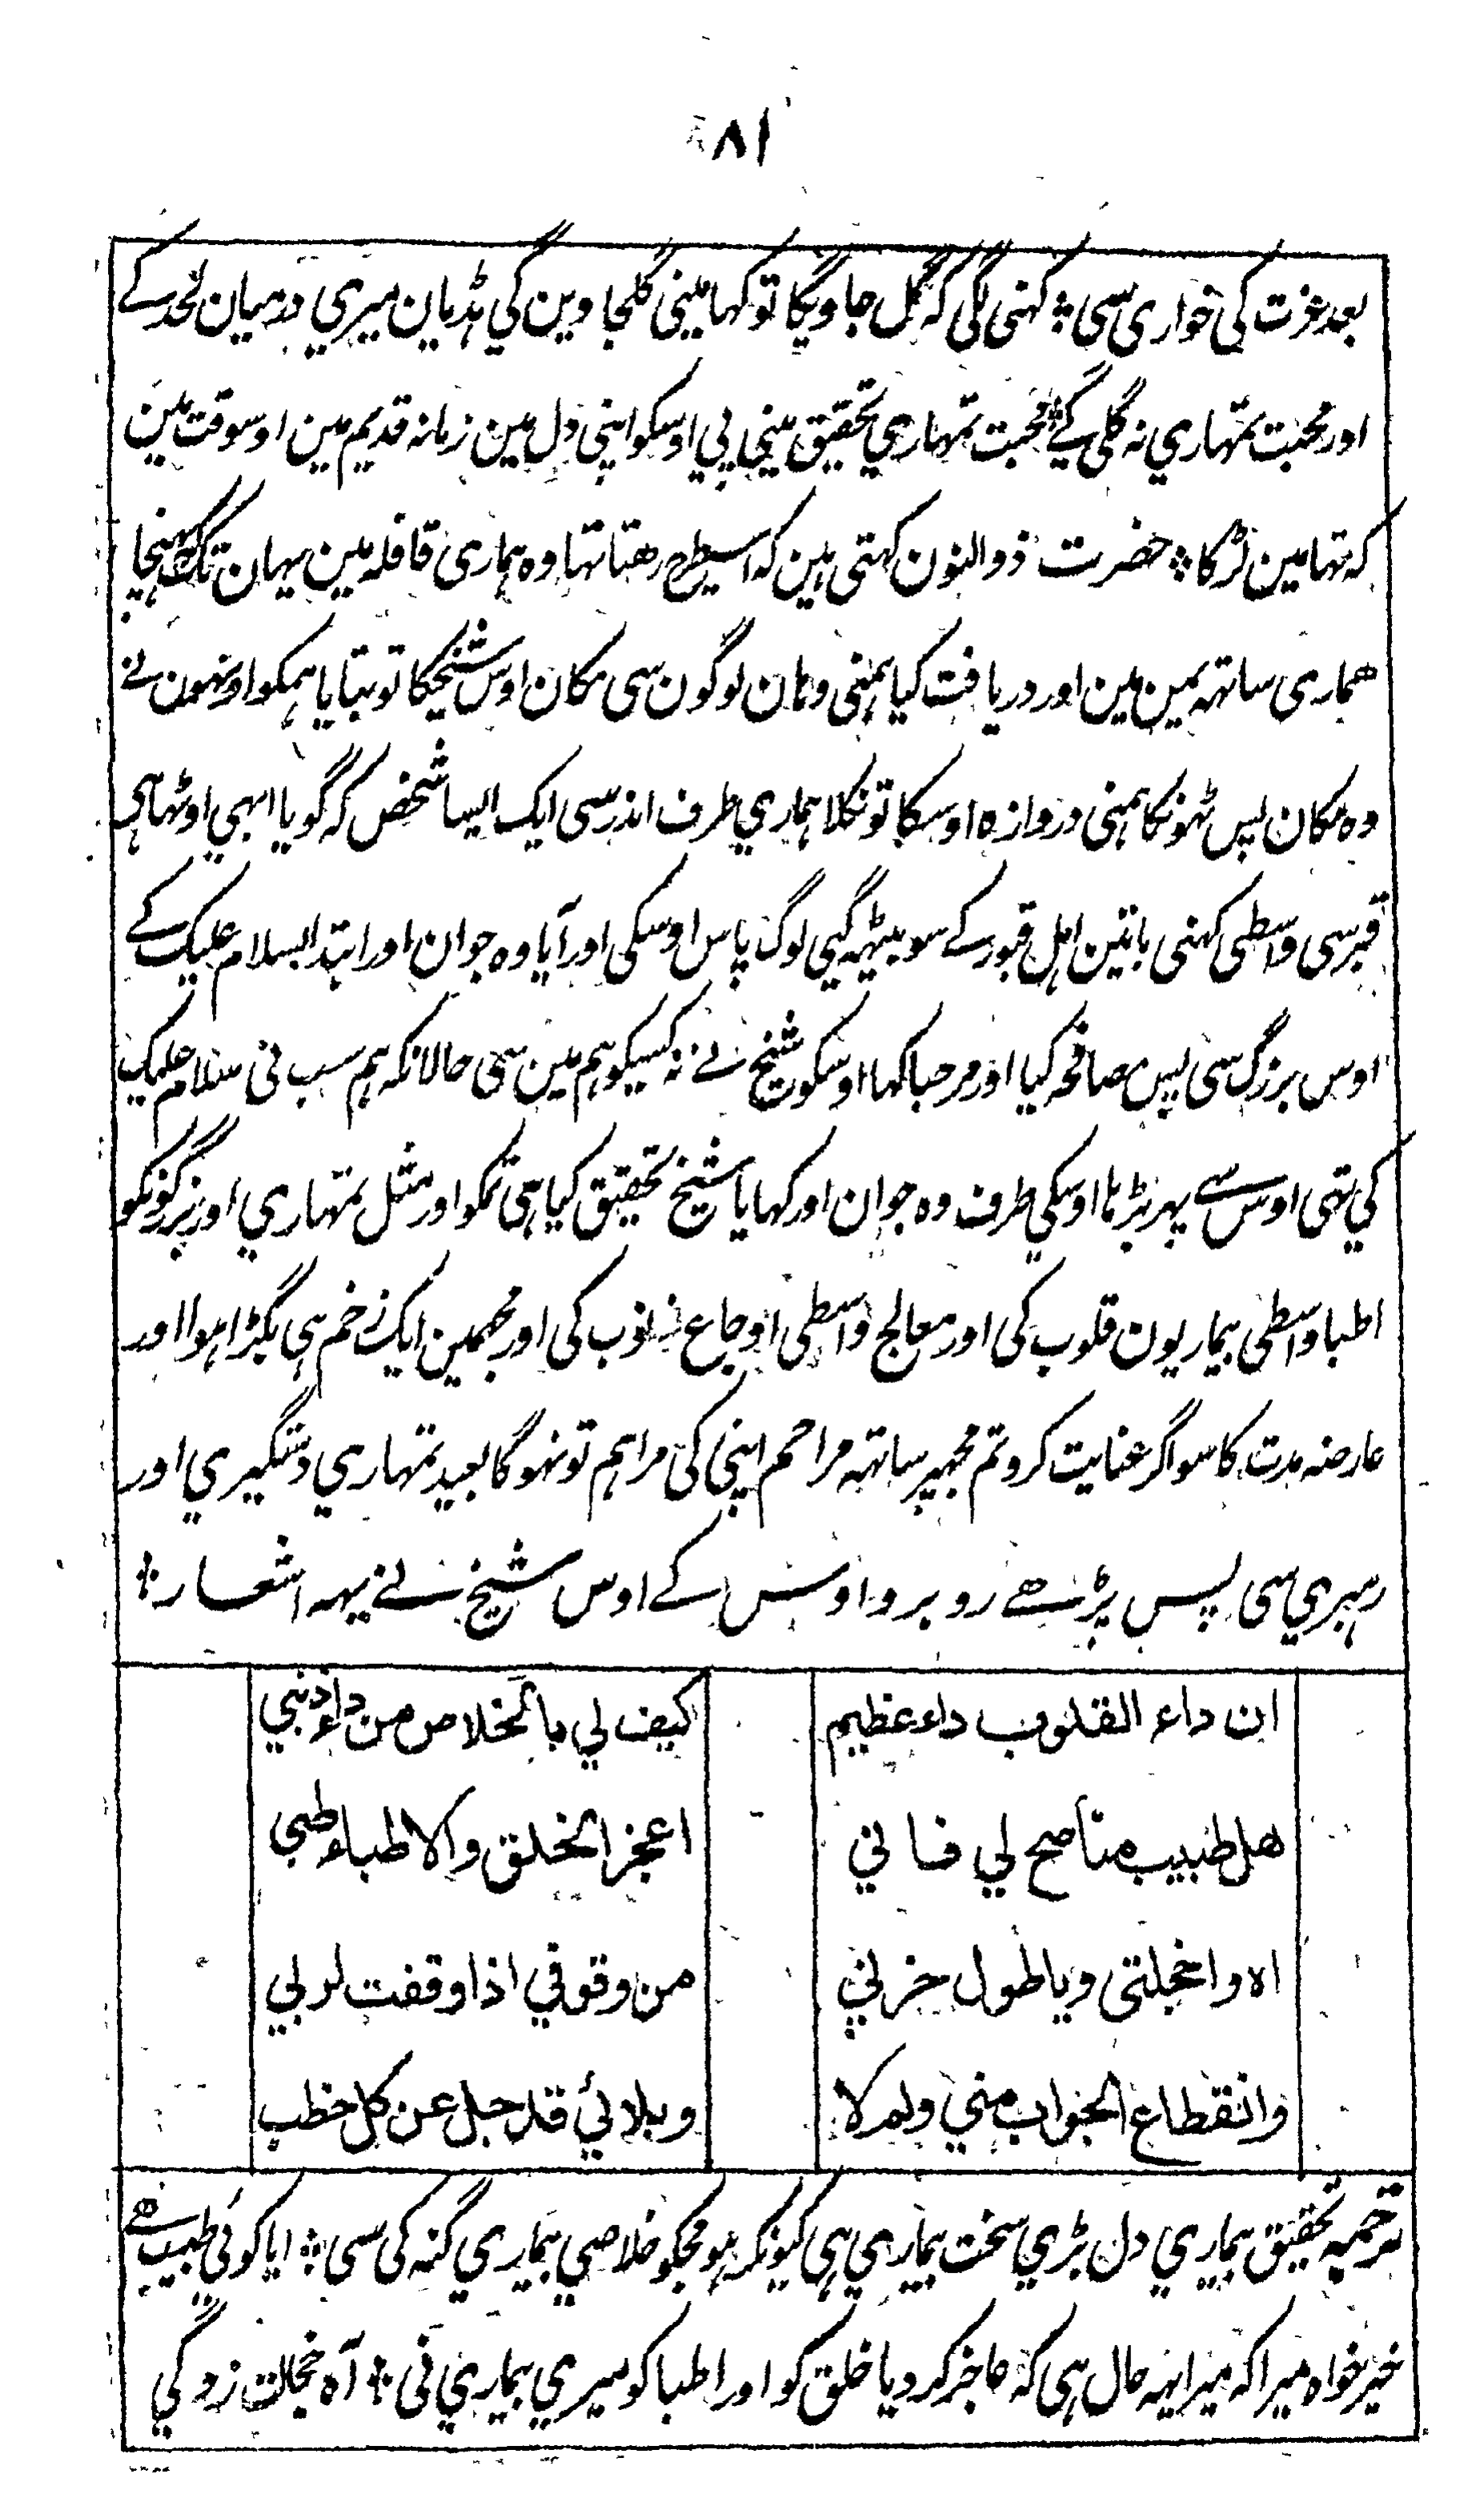 ۸۱
بعد عزت کی خواری سی ؞ کہنی لگی کہ گل جاویگا تو کہا مینی گلجاوین گی ہڈیان میری درمیان لحد کے
اور محبت تمہاری نہ گلی گے ؞ محبت تمہاری تحقیق مینی پی اوسکو اپنی دل مین زمانہ قدیم مین اوسوقت مین
کہ تہا مین لڑکا ؞ حضرت ذوالنون کہتی ہین کہ اسیطرح رہتا تہا وہ ہماری قافلہ مین یہان تک کہ پہنچا
ہماری ساتہہ یمن مین اور دریافت کیا ہمنی وہان لوگون سی مکان اوس شیخکا تو بتایا ہمکو اونہون نے
وہ مکان پس ٹہونکا ہمنی دروازہ اوسکا تو نکلا ہماری طرف اندر سی ایک ایسا شخص کہ گویا ابہی اوٹہا ہی
قبر سی واسطی کہنی باتین اہل قبور کے سو بیٹہہ گیی لوگ پاس اوسکی اور آیا وہ جوان اور ابتدا بسلام علیک کے
اوس بزرگ سی پس مصافحہ کیا اور مرحبا کہا اوسکو شیخ نے نہ کسیکو ہم مین سی حالانکہ ہم سب نی سلام علیک
کی تہی اوس سے پہر بڑہا اوسکی طرف وہ جوان اور کہا یا شیخ تحقیق کیا ہی تمکو اور مثل تمہاری اور بزرگونکو
اطبا واسطی بیماریون قلوب کی اور معالج واسطی اوجاع ذنوب کی اور مجہمین ایک زخم ہی بگڑا ہوا اور
عارضہ مدت کا سو اگر عنایت کرو تم مجہپر ساتہہ مراحم اپنی کی مراہم تو نہوگا بعید تمہاری دستگیری اور
رہبری سی پس پڑہے روبرو اوس کے اوس شیخ نے یہہ اشعار ؞
ان داء القلوب داء عظیم کیف لی بالخلاص من داء ذنبی
هل طبیب مناصح لی فانی اعجز الخلق والاطباء طبی
اه واخجلتی ویاطول حزنی من وقوفی اذا وقفت لربی
وانقطاع الجواب منی ولم لا وبلائی قد جل عن کل خطب
ترجمہ تحقیق بیماری دل بڑی سخت بیماری ہی کیونکر ہو مجکو خلاصی بیماری گنہ کی سی ؞ ایا کوئی طبیب ہے
خیر خواہ میرا کہ میرا یہہ حال ہی کہ عاجز کر دیا خلق کو اور اطبا کو میری بیماری نی ؞ آہ خجالت زدگی